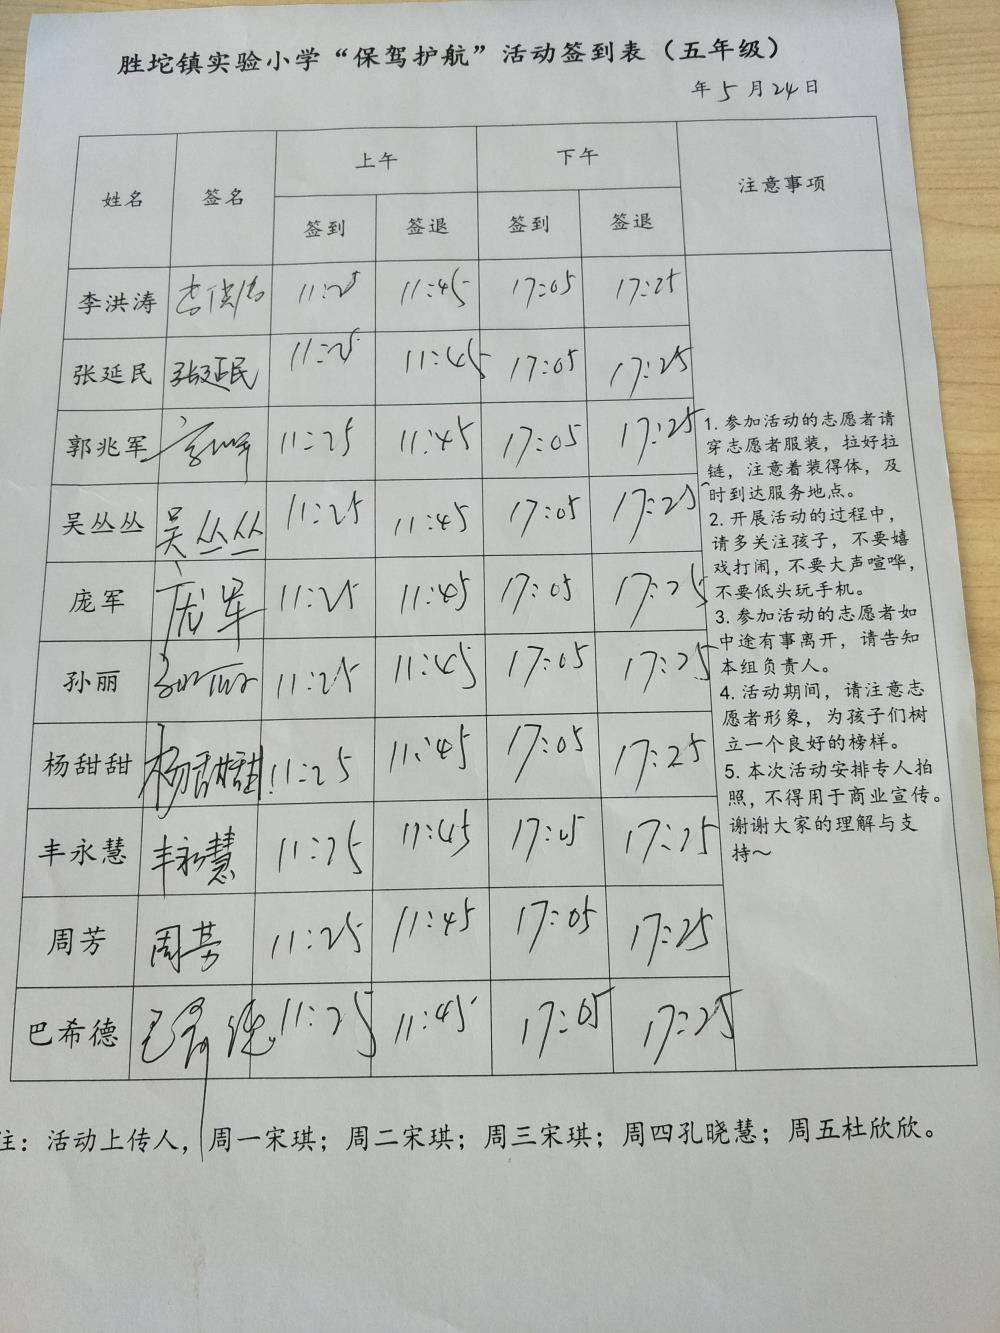 胜坨镇实验小学“保驾护航”活动签到表（五年级）
年5月24日
姓名 签名 上午 下午 注意事项
签到 签退 签到 签退
李洪涛 11:25 11:45 17:05 17:25
张延民 张延民 11:25 11:45 17:05 17:25
郭兆军 11:25 11:45 17:05 17:25
吴丛丛 吴丛丛 11:25 11:45 17:05 17:25
庞军 庞军 11:25 11:45 17:05 17:25
孙丽 孙丽 11:25 11:45 17:05 17:25
杨甜甜 杨甜甜 11:25 11:45 17:05 17:25
丰永慧 丰永慧 11:25 11:45 17:05 17:25
周芳 周芳 11:25 11:45 17:05 17:25
巴希德 巴希德 11:25 11:45 17:05 17:25
1. 参加活动的志愿者请
穿志愿者服装，拉好拉
链，注意着装得体，及
时到达服务地点。
2. 开展活动的过程中，
请多关注孩子，不要嬉
戏打闹，不要大声喧哗，
不要低头玩手机。
3. 参加活动的志愿者如
中途有事离开，请告知
本组负责人。
4. 活动期间，请注意志
愿者形象，为孩子们树
立一个良好的榜样。
5. 本次活动安排专人拍
照，不得用于商业宣传。
谢谢大家的理解与支
持～
注：活动上传人，周一宋琪；周二宋琪；周三宋琪；周四孔晓慧；周五杜欣欣。